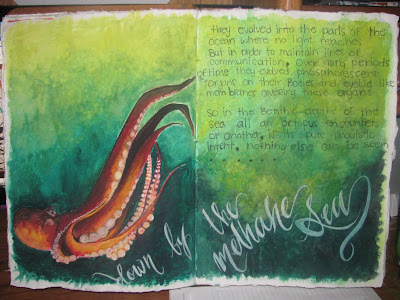 they evolved into the parts of the
ocean where no light reaches
But in order to maintain lines of
communication, over long periods
of time they evolved phosphorescent
organs on their Bodies and eyelid like
membranes covering these organs
So in the Benthic depths of the
sea all an octopus encounters
of another, is its pure linguistic
intent, nothing else can be seen
down by the
methane Sea